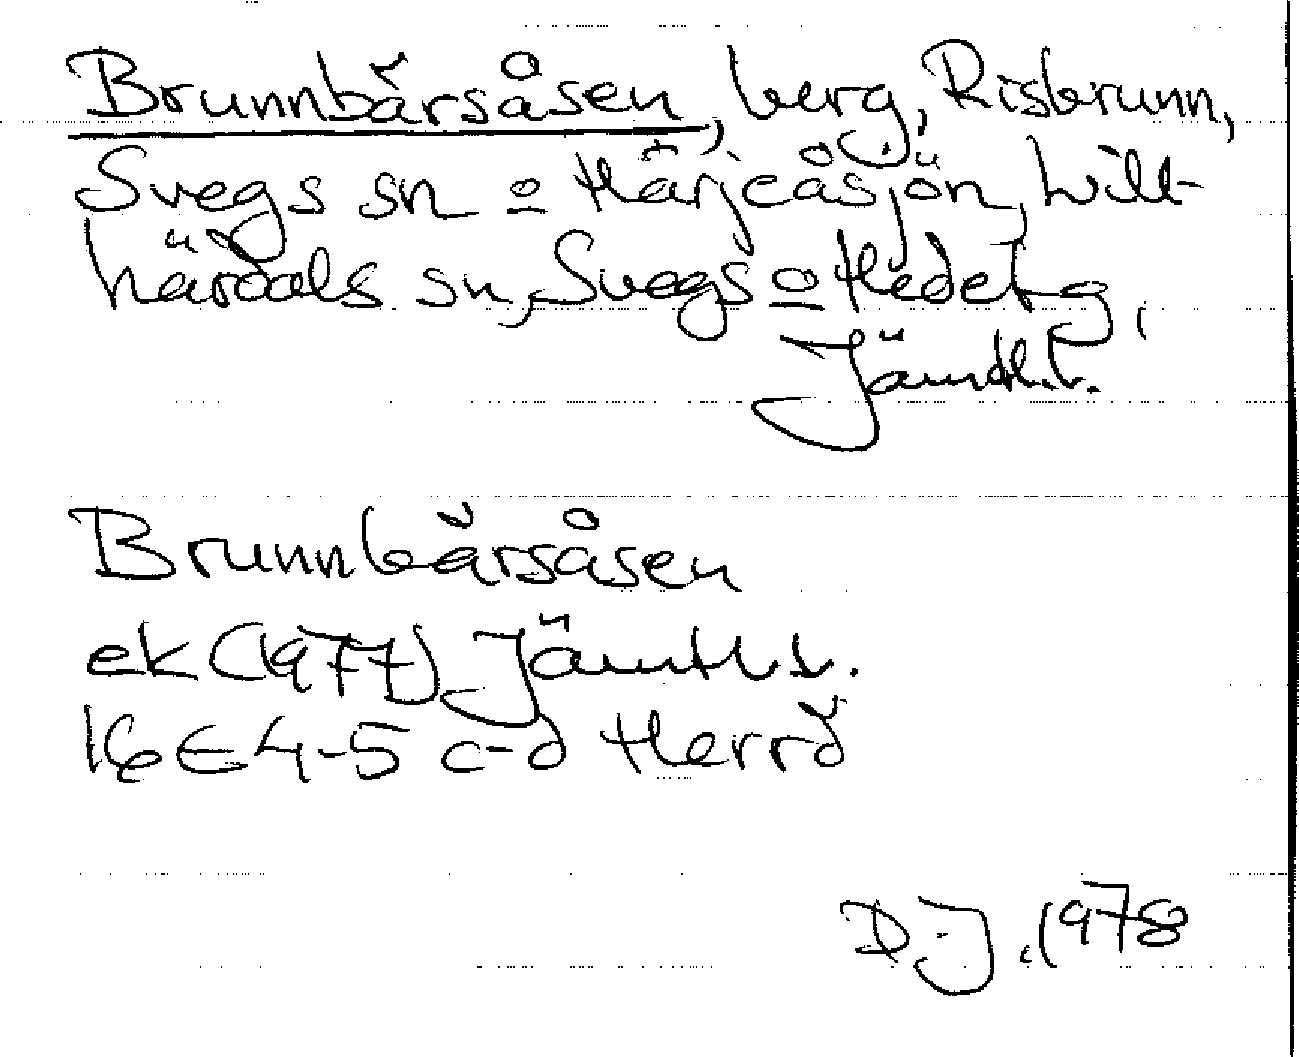 Brunnbärsåsen, berg, Risbrunn,
Svegs sn o Härjeåsjön, Lill-
härdals sn, Svegs o Hede tg,
Jämtl.l.
Brunnbärsåsen
ek (1977) Jämtl l.
16E 4-5 c-d Herrö
D.J. 1978